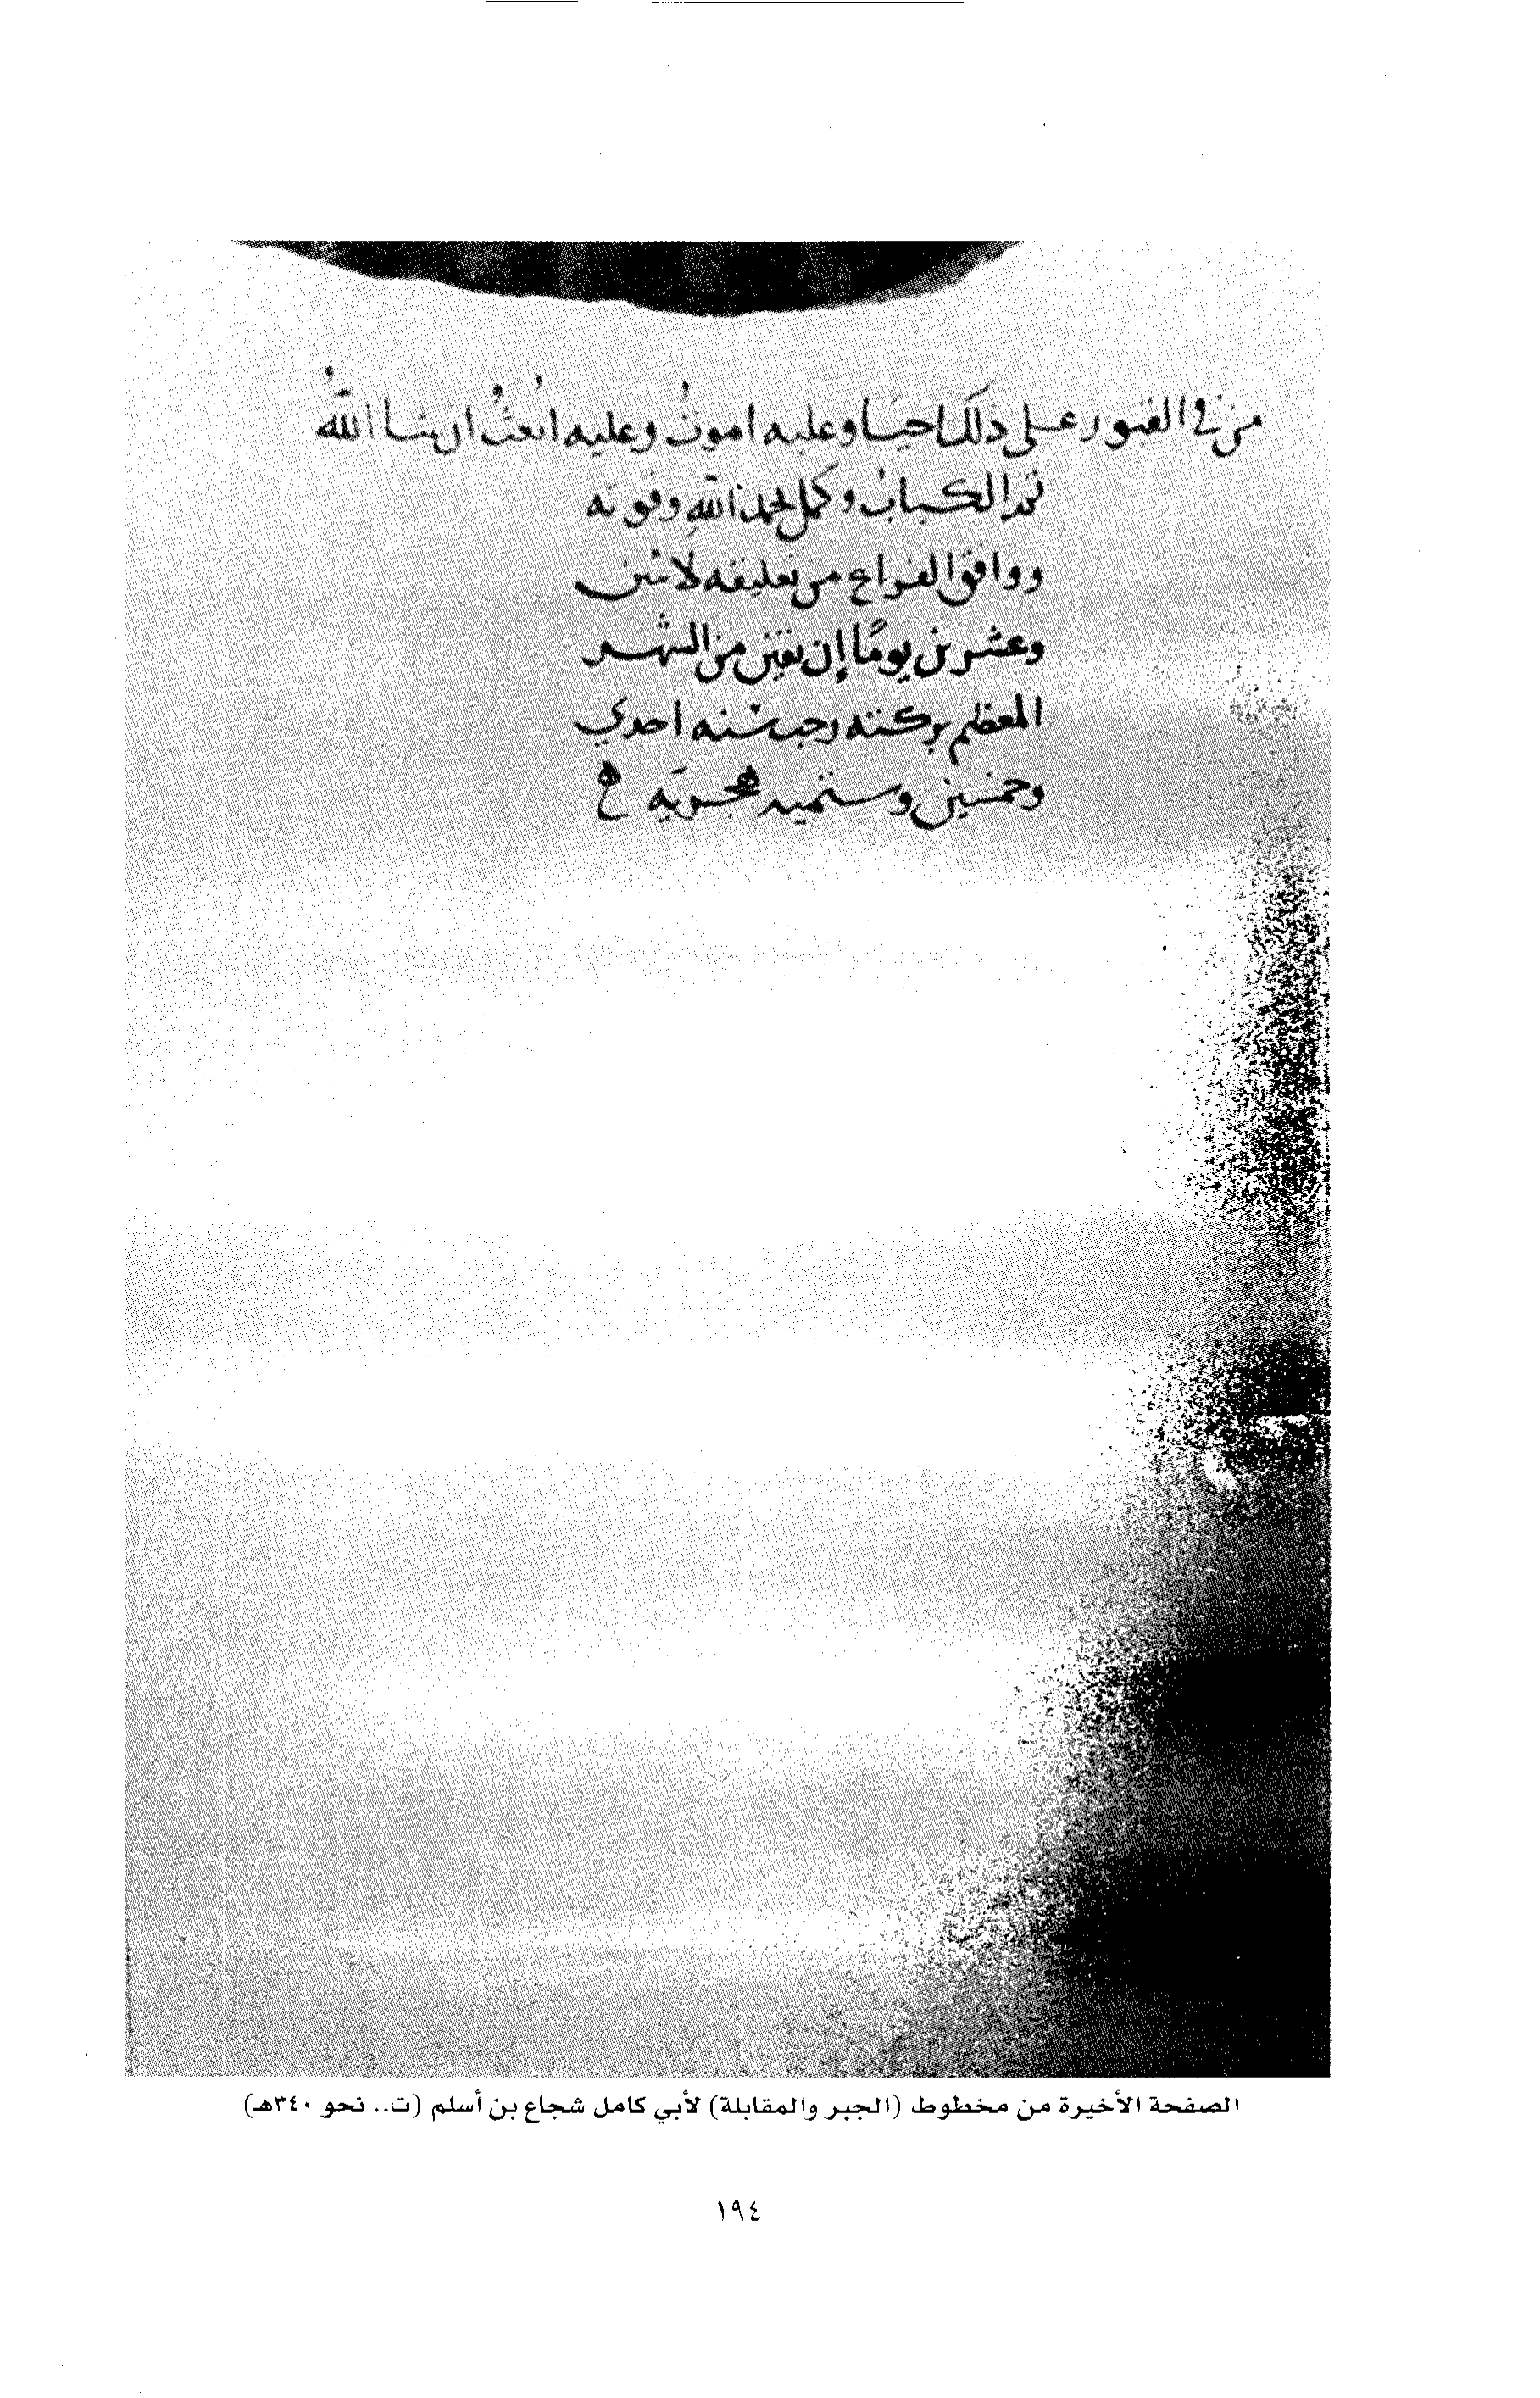 من في القبور على ذلك احيا وعليه اموت وعليه ابعث ان يشا الله
تم الكتاب وكمل بحمد الله وقوته
ووافق الفراغ من تعليقه لاثنين
وعشرين يومًا إن بقين من الشهر
المعظم بركته رجب سنه احدي
وخمسين وستميه هجريه
الصفحة الأخيرة من مخطوط (الجبر والمقابلة) لأبي كامل شجاع بن أسلم (ت.. نحو ٣٤٠هـ)
١٩٤